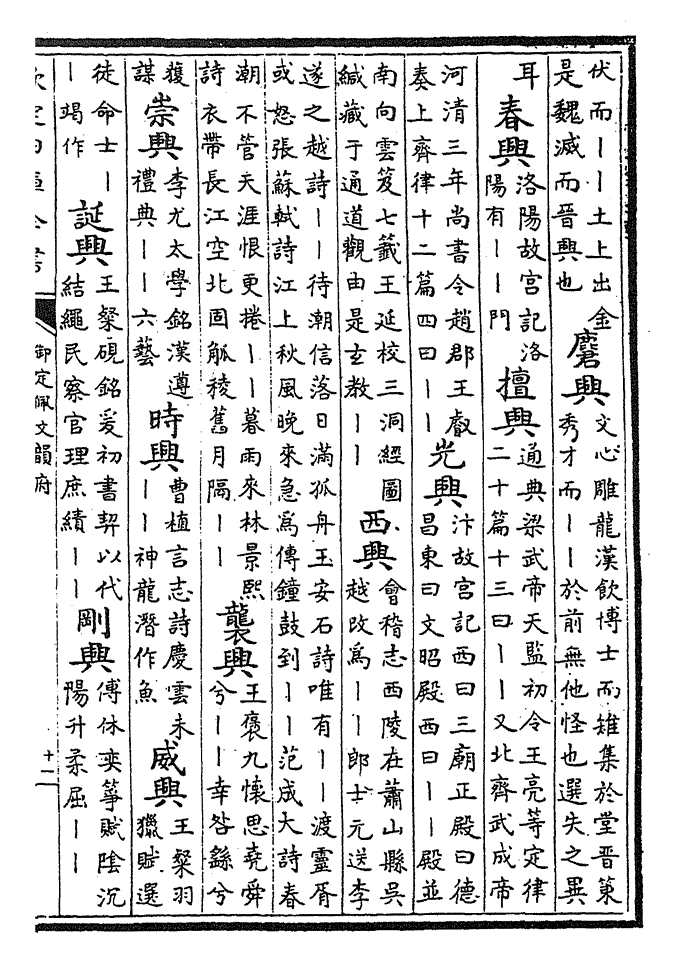 伏而丨丨土上出金
是魏滅而晉興也
麏興
文心雕龍漢飲博士而雉集於堂晉策
秀才而丨丨於前無他怪也選失之異
耳
春興
洛陽故宮記洛
陽有丨丨門
擅興
通典梁武帝天監初令王亮等定律
二十篇十三曰丨丨又北齊武成帝
河清三年尚書令趙郡王叡
奏上齊律十二篇四曰丨丨
光興
汴故宮記西曰三廟正殿曰德
昌東曰文昭殿西曰丨丨殿並
南向雲笈七籖王延校三洞經圖
緘藏于通道觀由是玄教丨丨
西興
會稽志西陵在蕭山縣吳
越改爲丨丨郎士元送李
遂之越詩丨丨待潮信落日滿孤舟王安石詩唯有丨丨渡靈胥
或怒張蘇軾詩江上秋風晚來急爲傳鐘鼓到丨丨范成大詩春
潮不管天涯恨更捲丨丨暮雨來林景熙
詩衣帶長江空北固觚稜舊月隔丨丨
襲興
王褒九懷思堯舜
兮丨丨幸咎繇兮
獲
謀
崇興
李尤太學銘漢遵
禮典丨丨六藝
時興
曹植言志詩慶雲未
丨丨神龍潛作魚
威興
王粲羽
獵賦選
徒命士丨
丨竭作
誕興
王粲硯銘爰初書契以代
結繩民察官理庶績丨丨
剛興
傅休奕箏賦陰沉
陽升柔屈丨丨
欽定四庫全書
御定佩文韻府
十一